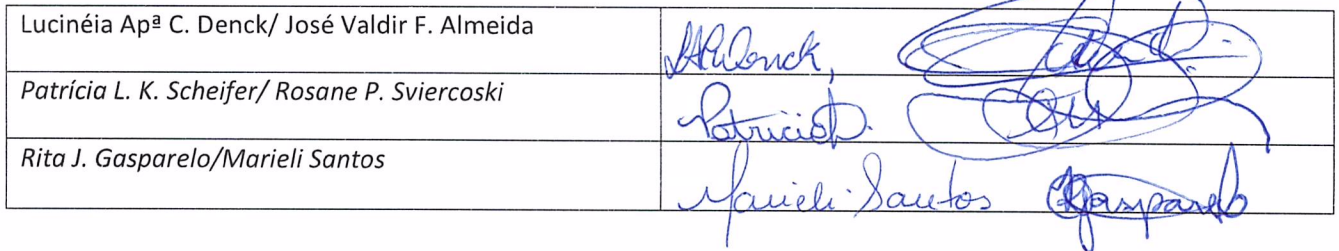 Lucinéia Apª C. Denck/ José Valdir F. Almeida
Denck,
Patrícia L. K. Scheifer/ Rosane P. Sviercoski
Rita J. Gasparelo/Marieli Santos
Marieli Santos Gasparelo